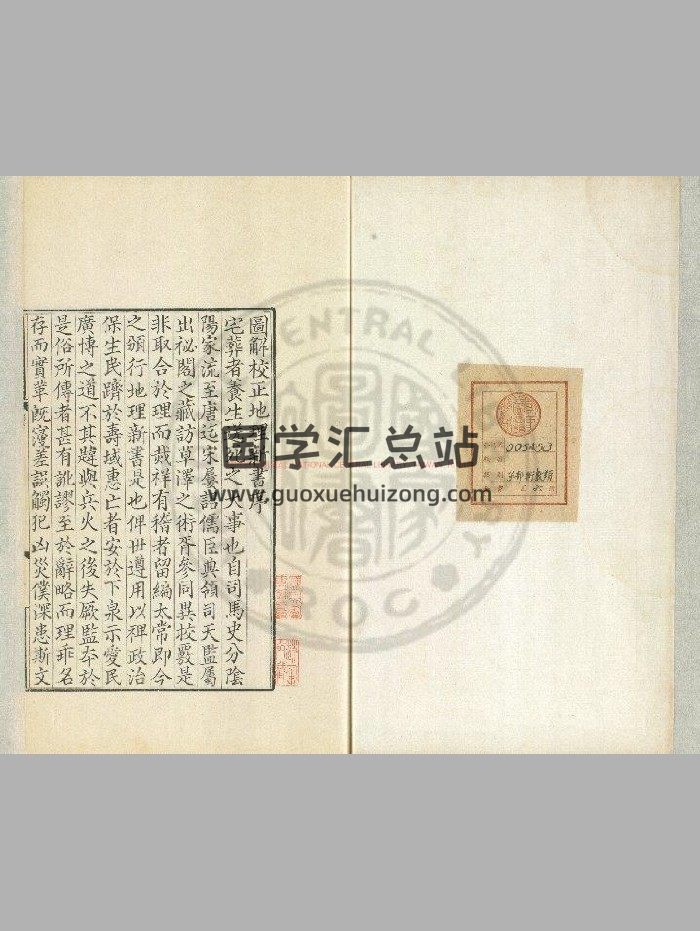 圖解校正地理新書序
宅葬者養生送死之大事也自司馬史分陰
陽家流至唐迄宋屢詔儒臣典領司天監屬
出祕閣之藏訪草澤之術胥參同異挍覈是
非取合於理而裁祥有稽者留編太常即今
之頒行地理新書是也俾丗遵用以裨政治
保生民躋於壽域惠亡者安於下泉示愛民
廣博之道不其韙與兵火之後失厥監夲於
是俗所傳者甚有訛謬至於辭略而理乖名
存而實革既寖差誤觸犯凶災僕深患斯文
国学汇总站
www.guoxuehuizong.com
CENTRAL
ROC
005453